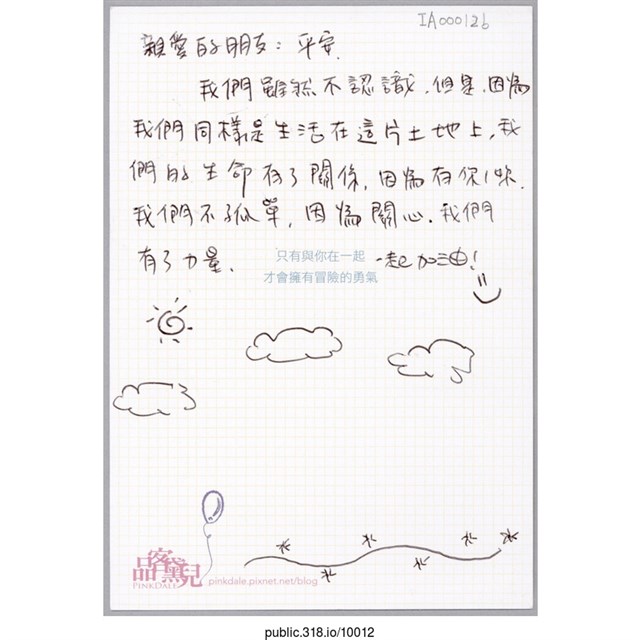 IA000126
親愛的朋友：平安.
我們雖然不認識，但是，因為
我們同樣是生活在這片土地上，我
們的生命有了關係，因為有你/妳.
我們不孤單，因為關心.我們
有了力量.
一起加油！
只有與你在一起
才會擁有冒險的勇氣
品客黛兒
PINKDALE
pinkdale.pixnet.net/blog
public.318.io/10012